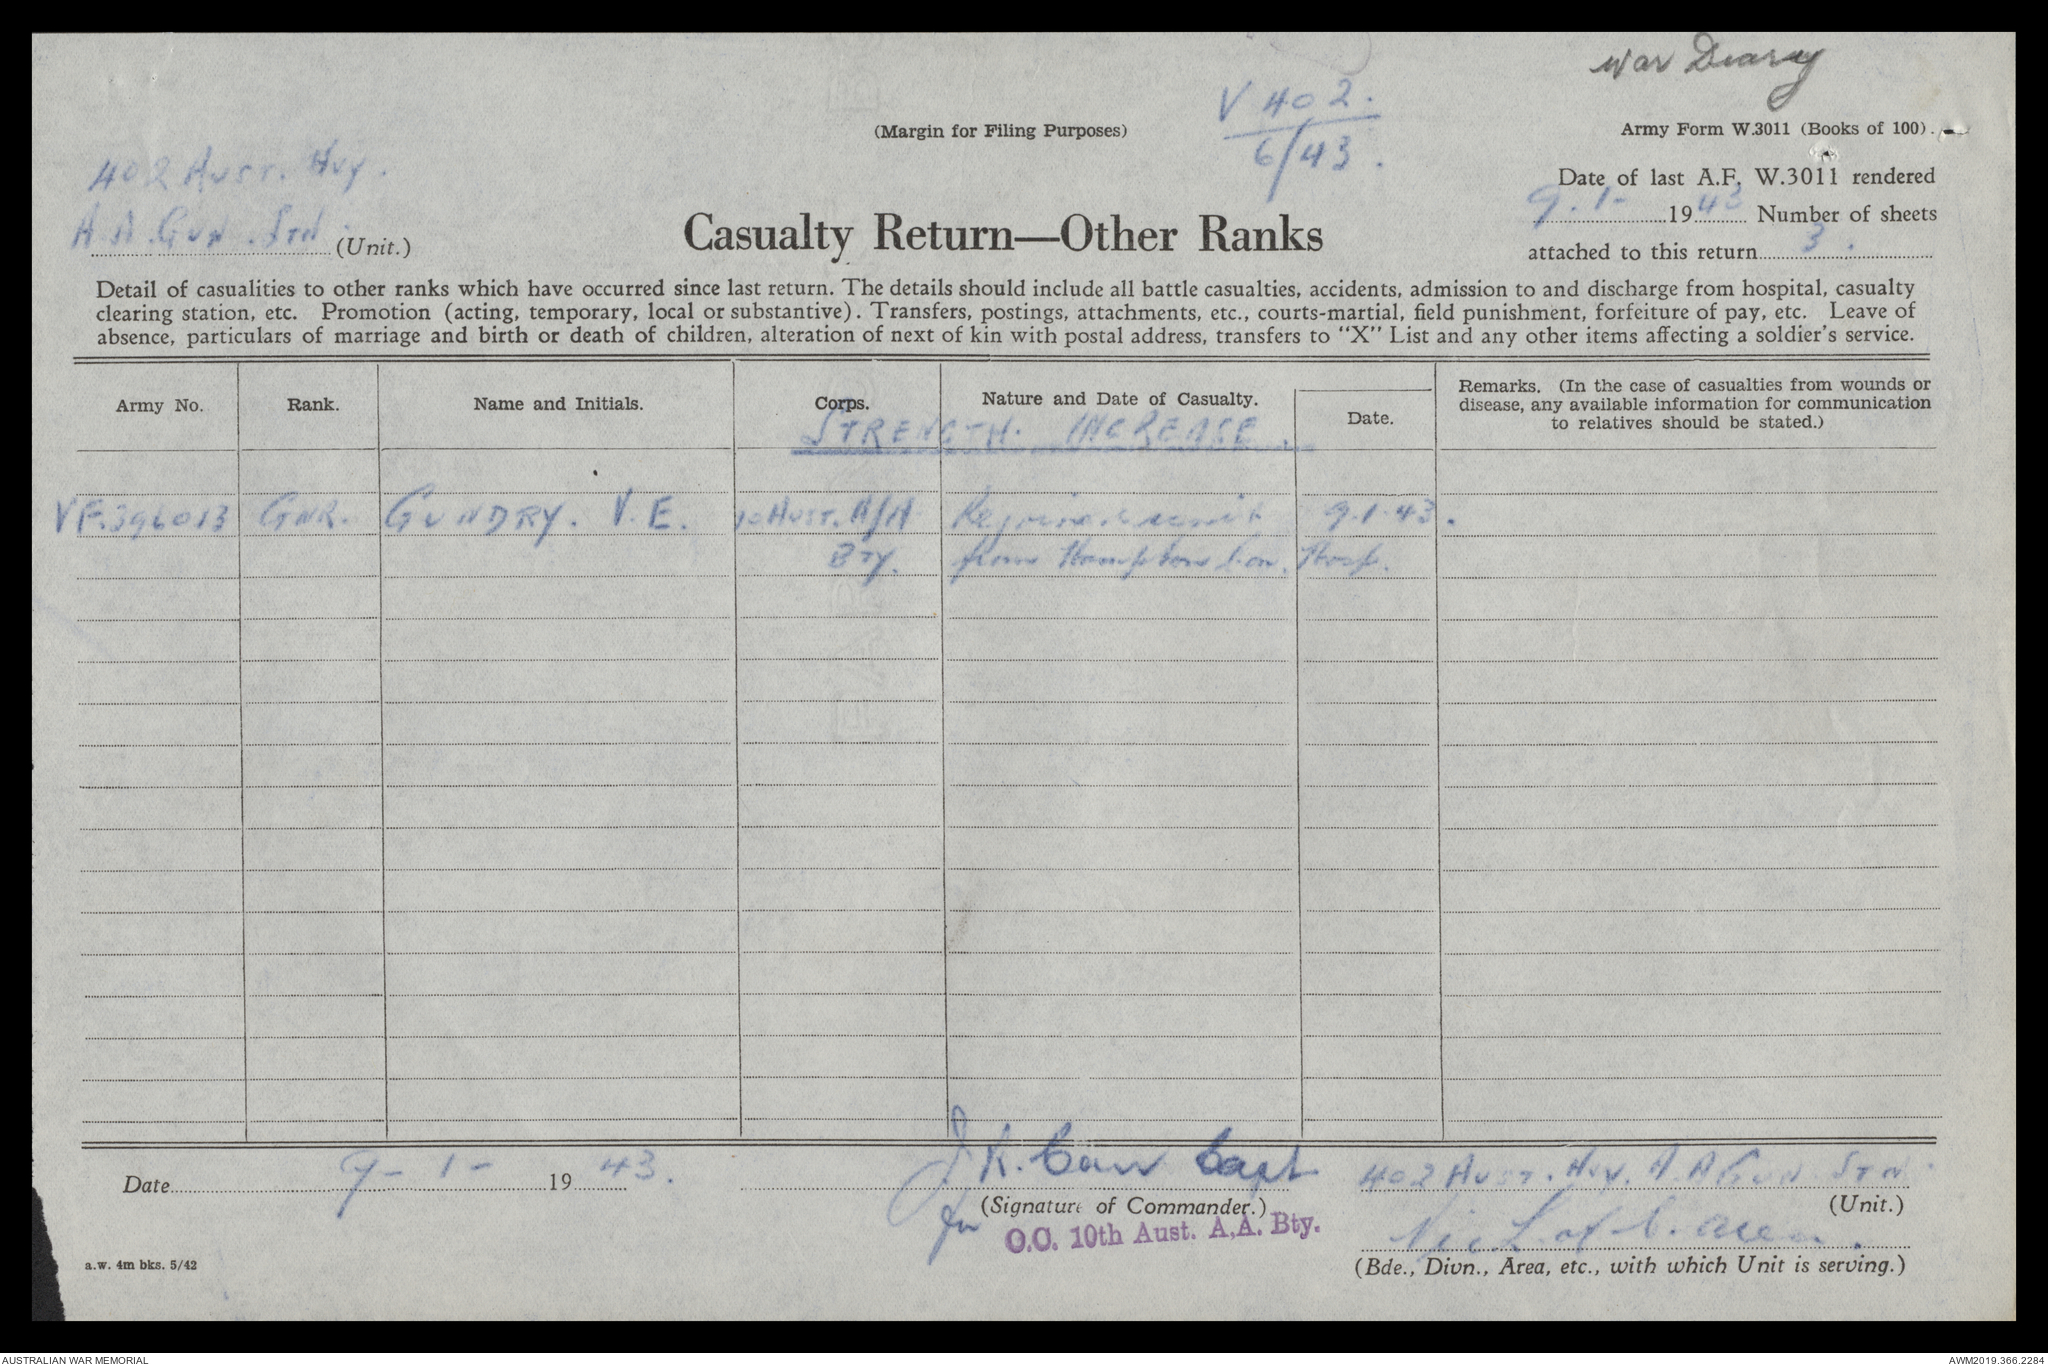 War Diary
V 402.
6/43.
(Margin for Filing Purposes)
Army Form W.3011 (Books of 100).
402 Aust. Hvy.
A A Gun Stn. (Unit.)
Casualty Return—Other Ranks
Date of last A.F. W.3011 rendered
9.1- 1943 Number of sheets
attached to this return 3.
Detail of casualities to other ranks which have occurred since last return. The details should include all battle casualties, accidents, admission to and discharge from hospital, casualty
clearing station, etc. Promotion (acting, temporary, local or substantive). Transfers, postings, attachments, etc., courts-martial, field punishment, forfeiture of pay, etc. Leave of
absence, particulars of marriage and birth or death of children, alteration of next of kin with postal address, transfers to "X" List and any other items affecting a soldier's service.
Army No. Rank. Name and Initials. Corps. Nature and Date of Casualty. Date. Remarks. (In the case of casualties from wounds or
disease, any available information for communication
to relatives should be stated.)
STRENGTH. INCREASE.
VF.396013 GNR. GUNDRY. V.E. 10 Aust. A/A Rejoined unit 9.1.43.
Bty. from Hampton Con. Hosp.
Date 9-1-1943.
J K. Capt
(Signature of Commander.)
for O.C. 10th Aust. A.A. Bty.
402 Aust. Hvy. A.A Gun Stn.
(Unit.)
Vic L of C. Area.
(Bde., Divn., Area, etc., with which Unit is serving.)
a.w. 4m bks. 5/42
AUSTRALIAN WAR MEMORIAL
AWM2019.366.2284